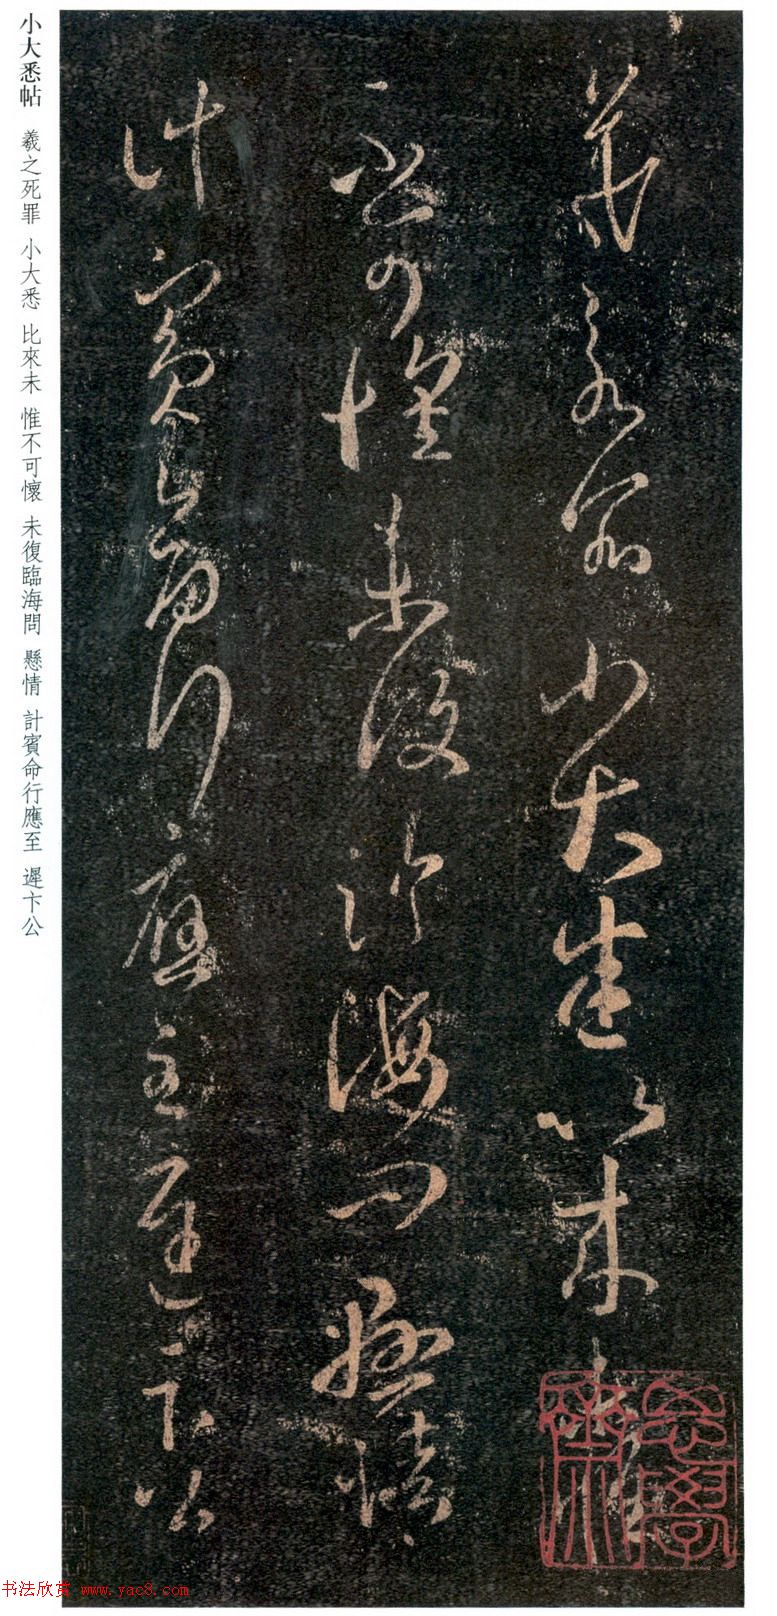 羲之死罪小大悉比來未惟
不可懷未復臨海問懸情
計賓命行應至遲卞公
小大悉帖 羲之死罪 小大悉 比來未 惟不可懷 未復臨海問 懸情 計賓命行應至 遲卞公
书法欣赏 www.yac8.com